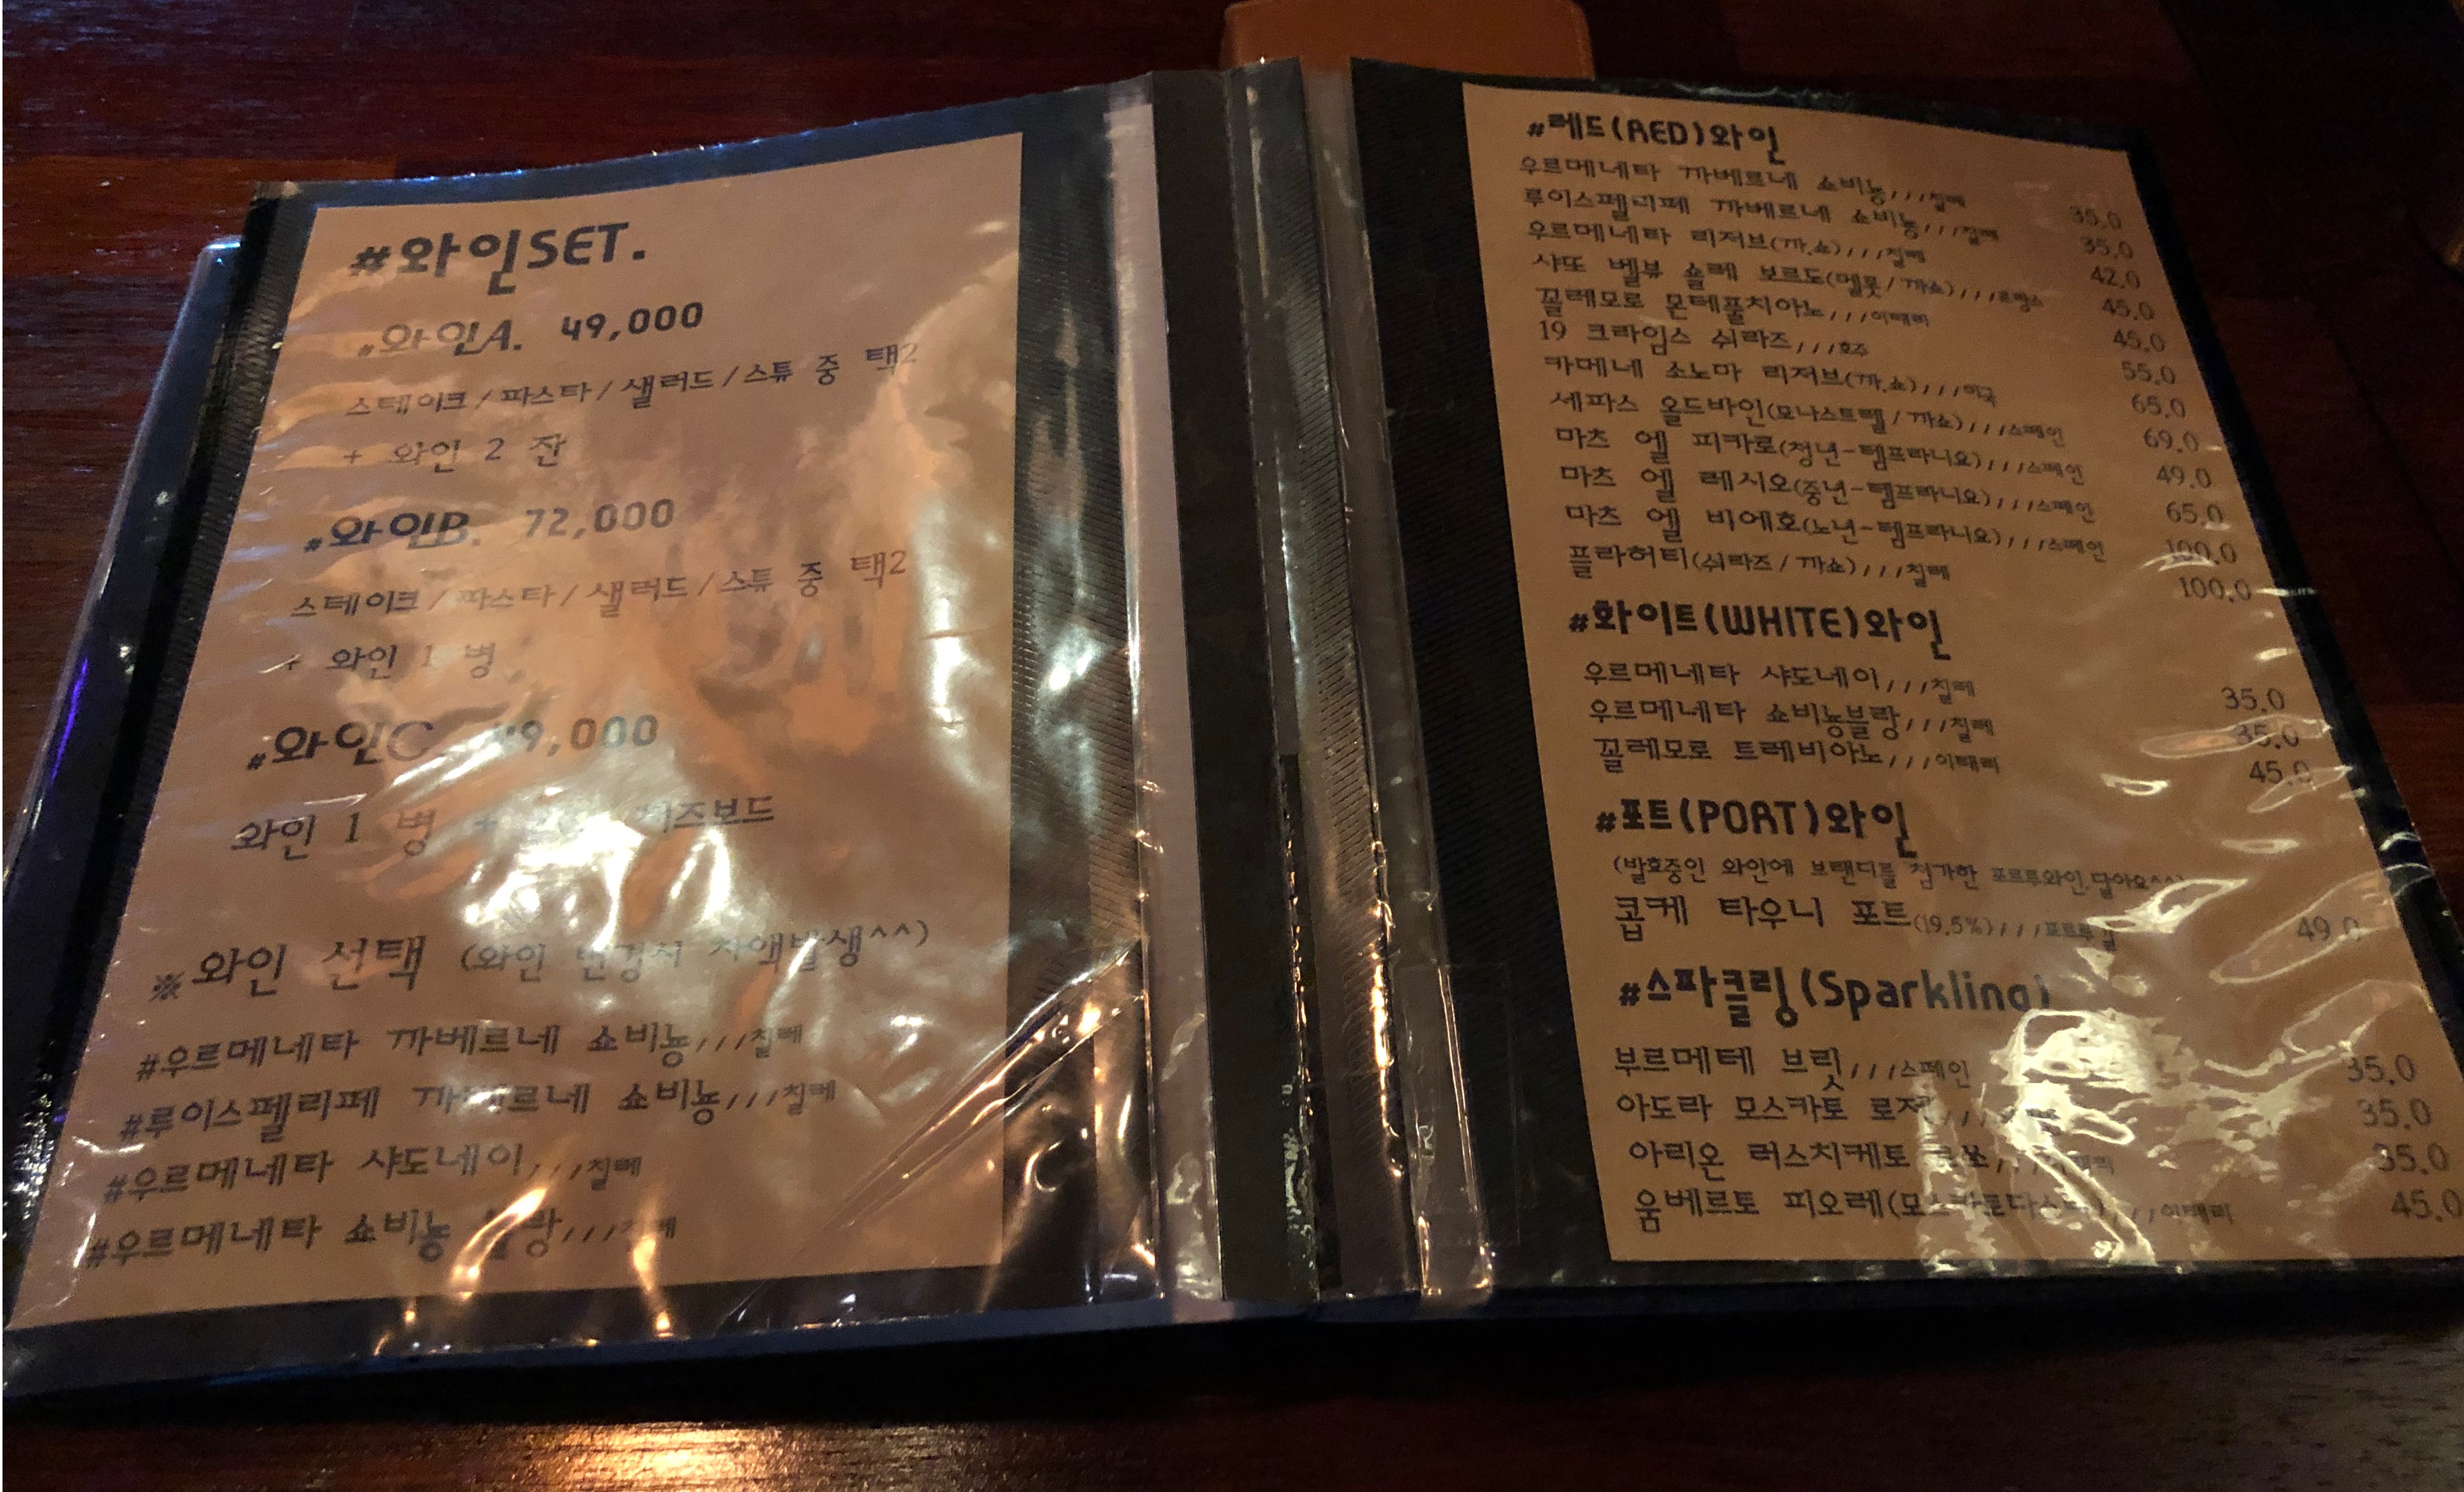 #와인SET.
#와인A. 49,000
스테이크/파스타/샐러드/스튜 중 택2
+ 와인 2 잔
#와인B. 72,000
스테이크/파스타/샐러드/스튜 중 택2
+ 와인 1 병
#와인C
와인 1 병 +
※와인 선택 (와인 변경시 차액발생^^)
#우르메네타 까베르네 쇼비뇽,,,칠레
#루이스펠리페 까베르네 쇼비뇽,,,칠레
#우르메네타 샤도네이,,,칠레
#우르메네타 쇼비뇽 블랑,,,칠레
#레드(RED)와인
우르메네타 까베르네 쇼비뇽,,,칠레 35.0
루이스펠리페 까베르네 쇼비뇽,,,칠레 35.0
우르메네타 리저브(까.쇼),,,칠레 42.0
샤또 벨뷰 숄레 보르도(멜롯/까쇼),,,프랑스 45.0
꼴레모로 몬테풀치아노,,,이태리 45.0
19 크라임스 쉬라즈,,,호주 55.0
카메네 소노마 리저브(까.쇼),,,미국 65.0
세파스 올드바인(모나스트렐/까쇼),,,스페인 69.0
마츠 엘 피카로(청년-템프라니요),,,스페인 49.0
마츠 엘 레시오(중년-템프라니요),,,스페인 65.0
마츠 엘 비에호(노년-템프라니요),,,스페인 100.0
플라허티(쉬라즈/까쇼),,,칠레 100.0
#화이트(WHITE)와인
우르메네타 샤도네이,,,칠레 35.0
우르메네타 쇼비뇽블랑,,,칠레 35.0
꼴레모로 트레비아노,,,이태리 45.0
#포트(PORT)와인
(발효중인 와인에 브랜디를 첨가한 포르투와인.달아요^^)
콥케 타우니 포트(19.5%),,,포르투갈 49.0
#스파클링(Sparkling)
부르메테 브릿,,,스페인 35.0
아도라 모스카토 로제,,, 35.0
아리온 러스치케토 로쏘,,,이태리 35.0
움베르토 피오레(모스카토다스티),,,이태리 45.0